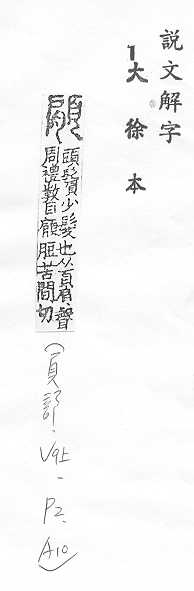 說文解字
1大徐本
顅
頭鬢少髮也从頁肩聲
周禮數目顅脰苦閒切
(頁部.V9上-P2.A10)